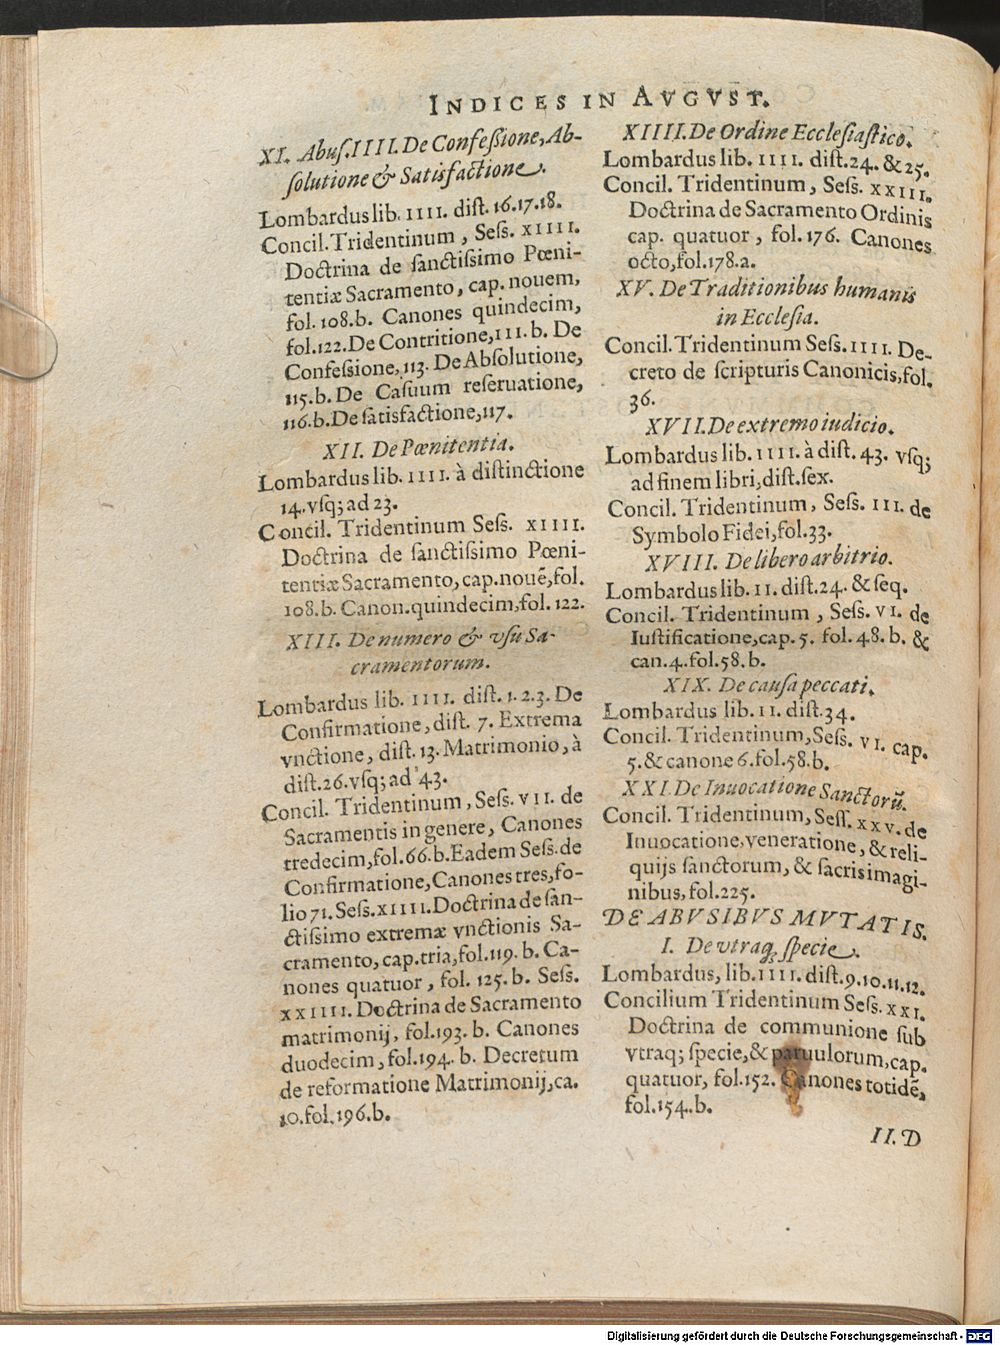 INDICES IN AVGVST.
XI. Abuſ. IIII. De Confeſsione, Ab-
ſolutione & Satisfactione.
Lombardus lib. IIII. diſt. 16.17.18.
Concil. Tridentinum, Seſs. XIIII.
Doctrina de ſanctiſsimo Pœni-
tentiæ Sacramento, cap. nouem,
fol. 108.b. Canones quindecim,
fol.122. De Contritione, 111. b. De
Confeſsione, 113. De Abſolutione,
115.b. De Caſuum reſeruatione,
116.b. De ſatisfactione, 117.
XII. De Pœnitentia.
Lombardus lib. IIII. à diſtinctione
14. vſq; ad 23.
Concil. Tridentinum Seſs. XIIII.
Doctrina de ſanctiſsimo Pœni-
tentiæ Sacramento, cap. nouē, fol.
108.b. Canon. quindecim, fol. 122.
XIII. De numero & vſu Sa-
cramentorum.
Lombardus lib. IIII. diſt. 1.2.3. De
Confirmatione, diſt. 7. Extrema
vnctione, diſt. 13. Matrimonio, à
diſt.26. vſq; ad 43.
Concil. Tridentinum, Seſs. VII. de
Sacramentis in genere, Canones
tredecim, fol.66.b. Eadem Seſs. de
Confirmatione, Canones tres, fo-
lio 71. Seſs. XIIII. Doctrina de ſan-
ctiſsimo extremæ vnctionis Sa-
cramento, cap. tria, fol.119. b. Ca-
nones quatuor, fol. 125. b. Seſs.
XXIIII. Doctrina de Sacramento
matrimonij, fol.193. b. Canones
duodecim, fol.194. b. Decretum
de reformatione Matrimonij, ca.
10. fol. 196.b.
XIIII. De Ordine Eccleſiaſtico.
Lombardus lib. IIII. diſt. 24. & 25.
Concil. Tridentinum, Seſs. XXIII.
Doctrina de Sacramento Ordinis
cap. quatuor, fol. 176. Canones
octo, fol.178.a.
XV. De Traditionibus humanis
in Eccleſia.
Concil. Tridentinum Seſs. IIII. De-
creto de ſcripturis Canonicis, fol.
36.
XVII. De extremo iudicio.
Lombardus lib. IIII. à diſt. 43. vſq;
ad finem libri, diſt. ſex.
Concil. Tridentinum, Seſs. III. de
Symbolo Fidei, fol.33.
XVIII. De libero arbitrio.
Lombardus lib. II. diſt.24. & ſeq.
Concil. Tridentinum, Seſs. VI. de
Iuſtificatione, cap. 5. fol. 48. b. &
can. 4. fol.58. b.
XIX. De cauſa peccati.
Lombardus lib. II. diſt.34.
Concil. Tridentinum, Seſs. VI. cap.
5. & canone 6. fol.58.b.
XXI. De Inuocatione Sanctorū.
Concil. Tridentinum, Seſſ. XXV. de
Inuocatione, veneratione, & reli-
quijs ſanctorum, & ſacris imagi-
nibus, fol.225.
DE ABVSIBVS MVTATIS.
I. De vtraq; ſpecie.
Lombardus, lib. IIII. diſt. 9.10.11.12.
Concilium Tridentinum Seſs. XXI.
Doctrina de communione ſub
vtraq; ſpecie, & paruulorum, cap.
quatuor, fol.152. Canones totidē,
fol.154.b.
II. D
Digitalisierung gefördert durch die Deutsche Forschungsgemeinschaft - DFG